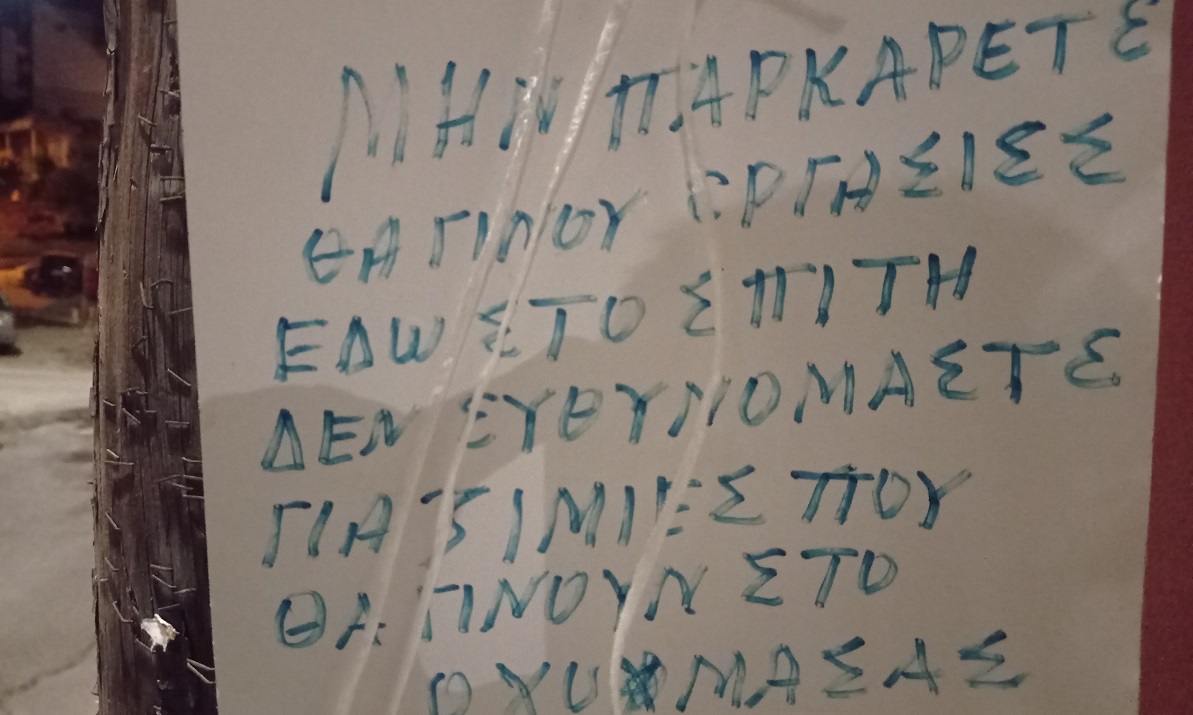 ΜΗΝ ΠΑΡΚΑΡΕΤΕ
ΘΑ ΓΙΝΟΥ ΕΡΓΑΣΙΕΣ
ΕΔΩ ΣΤΟ ΣΠΙΤΗ
ΔΕΝ ΕΥΘΥΝΟΜΑΣΤΕ
ΓΙΑ ΖΙΜΙΕΣ ΠΟΥ
ΘΑ ΓΙΝΟΥΝ ΣΤΟ
ΟΧΥΜΑΣΑΣ